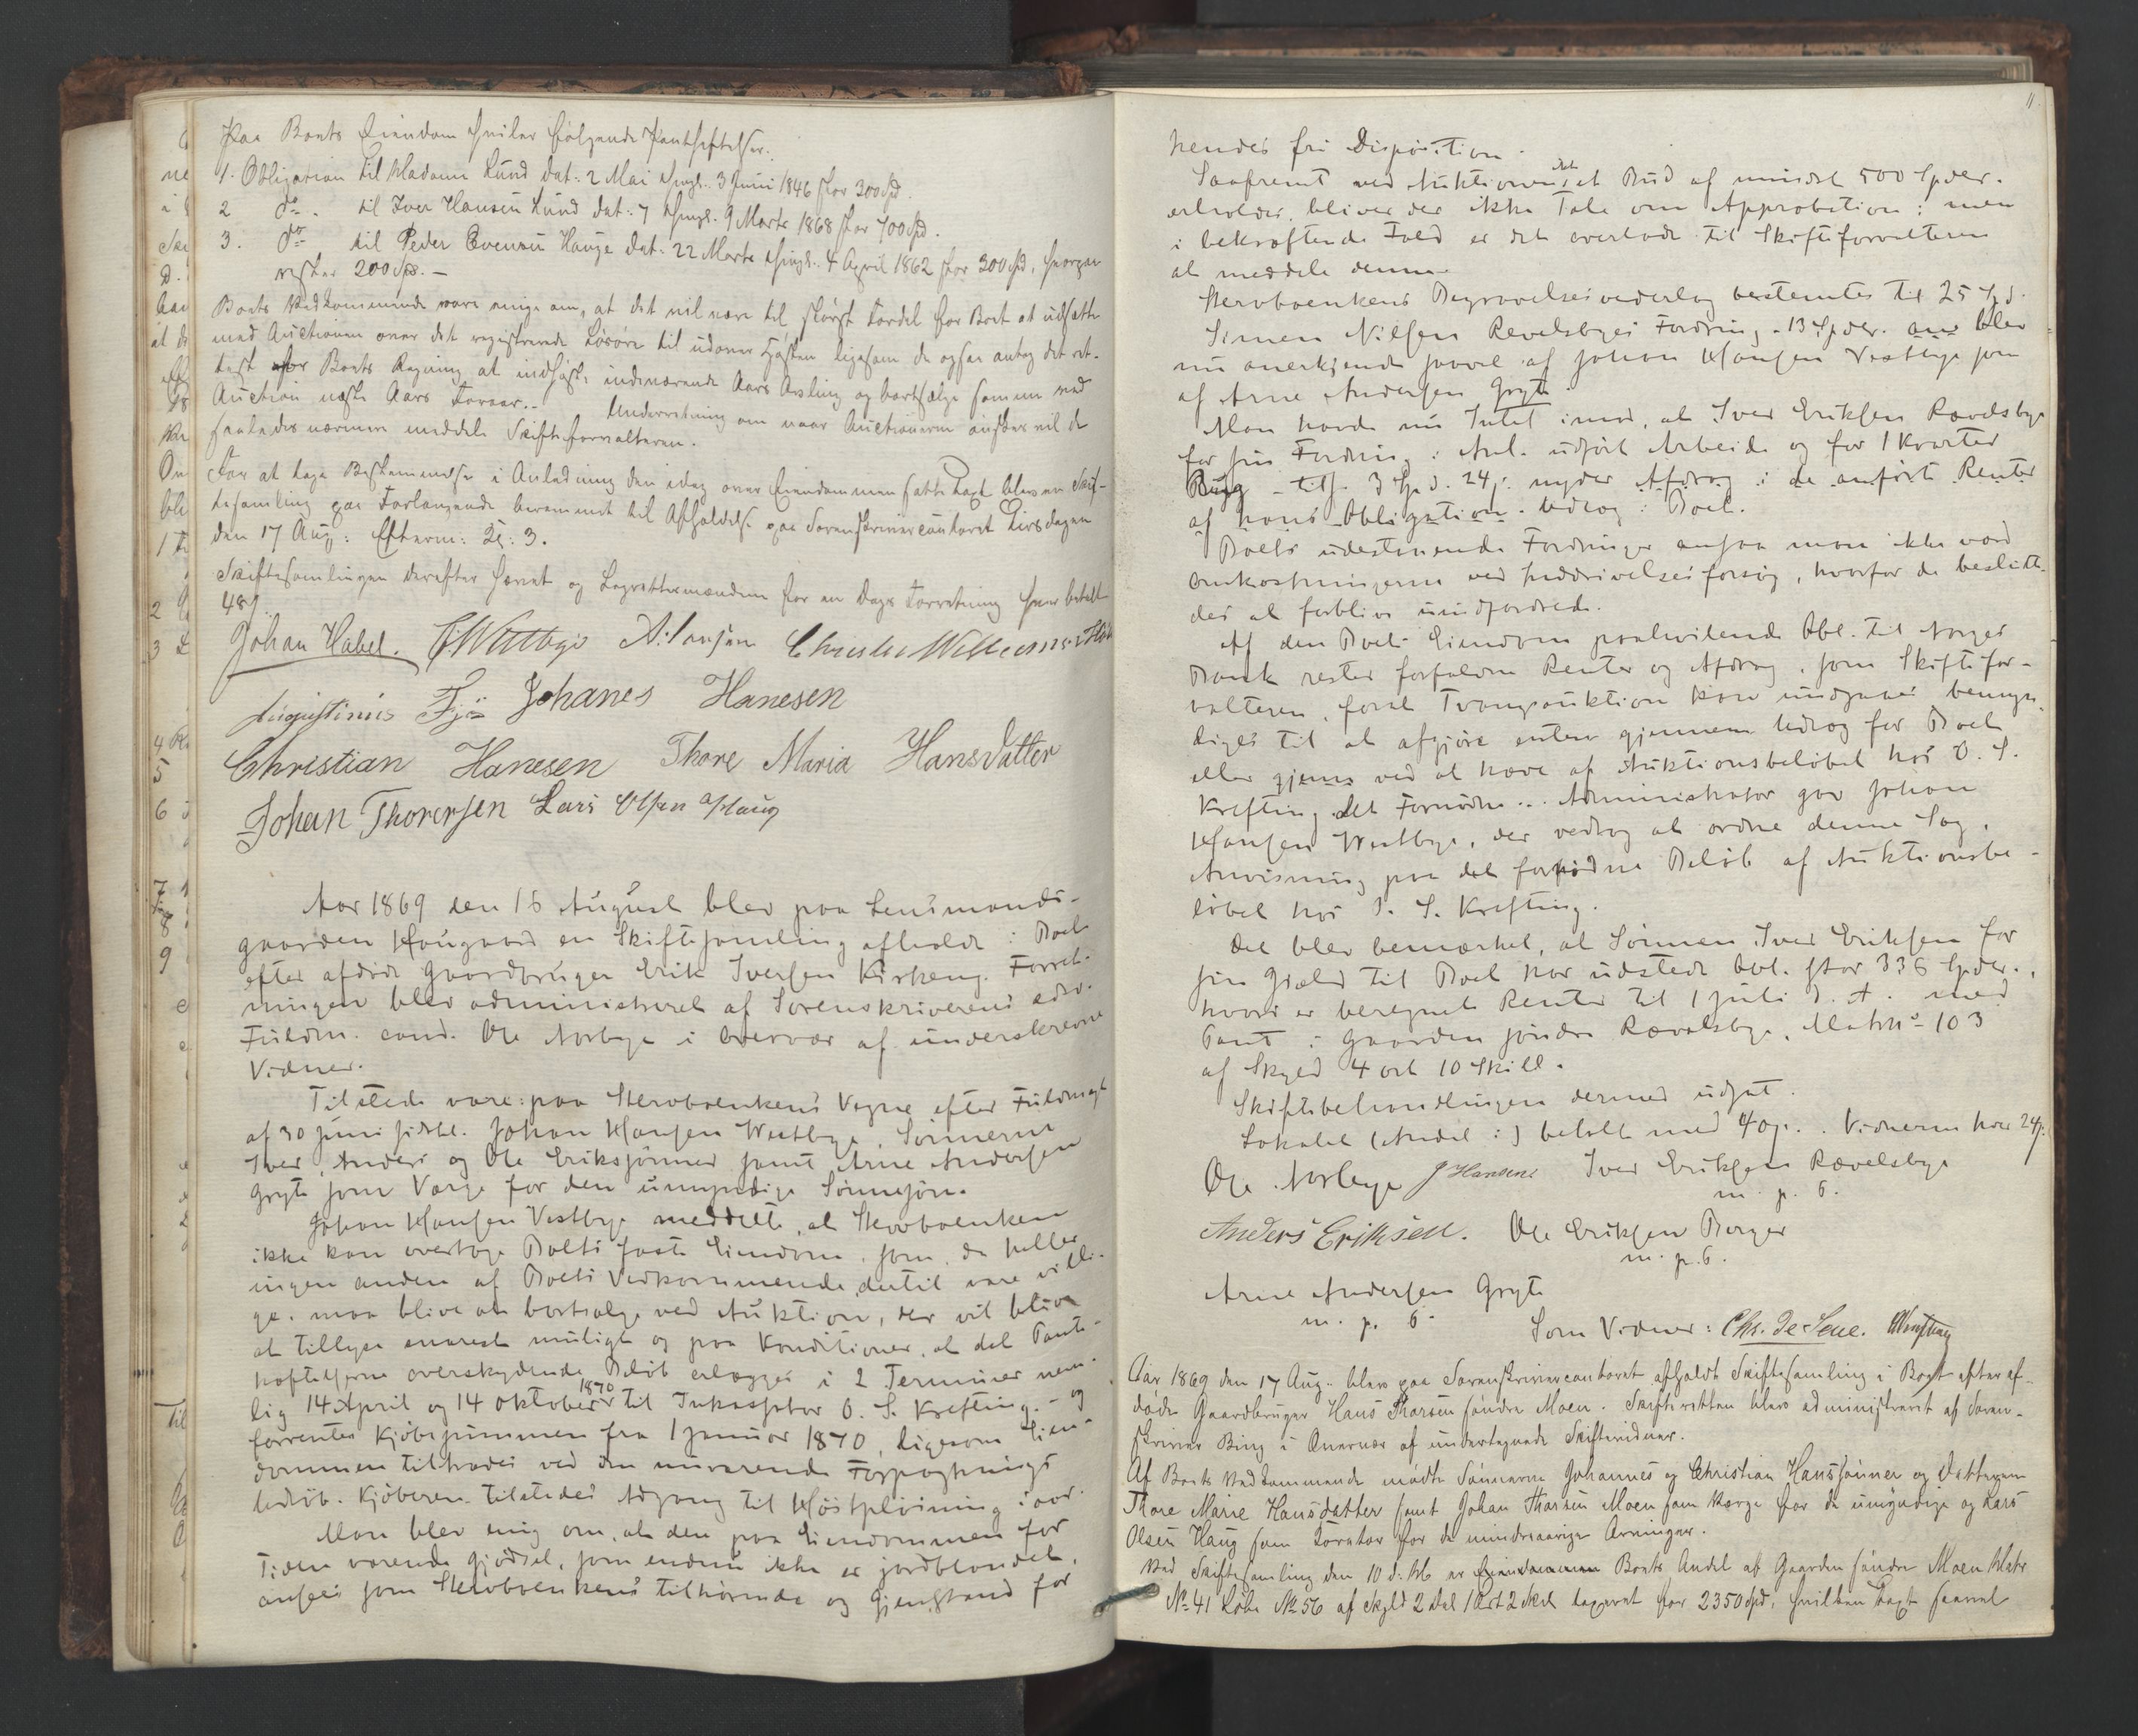 Paa Boets Eiendom hviler følgende Panthæftelser.
1. Obligation til Madame Lund dat: 2 Mai thingl. 3 Juni 1846 stor 300 Spd.
2 do. til Iver Hansen Lund dat: 7 thingl. 9 Marts 1868 stor 700 Spd.
3. do til Peder Evensen Hauge dat: 22 Marts thingl. 4 April 1862 stor 300 Spd, hvorpaa
rester 200 Spd. —
Boets Vedkommende vare enige om, at det vil være til størst Fordel for Boet at udsætte
med Auctionen over det registrerede Løsøre til udover Høsten ligesom de ogsaa antog det ret-
test for Boets Regning at indhøste indeværende Aars Avling og bortsælge samme ved
Auction næste Aars Foraar.. Underretning om naar Auctionerne ønskes vil de
saaledes nærmere meddele Skifteforvalteren.
For at tage Bestemmelse i Anledning den idag over Eiendommen satte Taxt blev en Skif-
tesamling paa Forlangende berammet til Afholdelse paa Sorenskrivercontoret Tirsdagen
den 17 Aug: Efterm: Kl: 3.
Skiftesamlingen derefter hævet og Lagrettesmændene for en Dags Forretning hver betalt
48 s.
Johan Habel. Westbye A. Larsen Christen
Augustinus Johanes Hanesen
Christian Hanesen Thore Maria Hansdatter
Johan Thoresen Lars Olsen Haug
Aar 1869 den 16 August blev paa Lensmands-
gaarden Haugaard en Skiftesamling afholdt i Boet
efter afdøde Gaardbruger Erik Iversen Kirkeng. Forret-
ningen blev administreret af Sorenskriverens edsv.
Fuldm. cand. Ole Norbye i Overvær af underskrevne
Vidner.
Tilstede vare: paa Stervboenkens Vegne efter Fuldmagt
af 30 Juni sidstl. Johan Hansen Westbye, Sønnerne
Iver, Anders og Ole Erikssønner samt Arne Andersen
Gryte som Værge for den umyndige Sønnesøn.
Johan Hansen Vestbye meddelte, at Stervboenken
ikke kan overtage Boets faste Eiendom, som, da heller
ingen anden af Boets Vedkommende dertil vare villi-
ge, maa blive at bortsælge ved Auktion, der vil blive
at tillyse snarest muligt og paa Konditioner, at det Pante-
hæftelserne overskydende Beløb erlægges i 2 Terminer nem-
lig 14 April og 14 Oktober 1870 til Inkassator O. S. Krefting. – og
forrentes Kjøbesummen fra 1 Januar 1870, ligesom Eien-
dommen tiltrædes ved den nuværende Forpagtnings
Udløb. Kjøberen tilstedes Adgang til Høstpløining iaar.
Man blev enig om, at den paa Eiendommen for
Tiden værende Gjødsel, som endnu ikke er jordblandet,
ansees som Stervboenkens tilhørende og Gjenstand for
11.
hendes fri Disposition.
Saafremt ved Auktionen, det et Bud af mindst 500 Spdlr.
erholdes, bliver der ikke Tale om Approbation; men
i bekræftende Fald er det overladt til Skifteforvalteren
at meddele denne.
Stervboenkens Begravelsesvederlag bestemtes til 25 Spd.
Simen Nilsen Revelsbyes Fordring - 13 Spdlr. blev
nu anerkjendt saavel af Johan Hansen Vestbye som
af Arne Andersen Gryte.
Man havde nu Intet imod, at Iver Eriksen Rævelsbye
for sin Fordring i Anl. udført Arbeide og for 1 Kvarter
Rug - tils. 3 Spd. 24 s. nyder Afdrag i de anførte Renter
af hans Obligation. Udlæg i Boet.
Boets udestaaende Fordringer ansaa man ikke værd
Omkostningerne ved Inddrivelsesforsøg, hvorfor de beslutte-
des at forblive uindfordrede.
Af den Boets Eiendom paahvilende Obl. til Norges
Bank rester forfaldne Renter og Afdrag, som Skiftefor-
valteren, forat Tvangsauktion kan undgaaes bemyn-
diges til at afgjøre enten gjennem Udlæg for Boet
eller gjenn ved at hæve af Auktionsbeløbet hos O. S.
Krefting det Fornødne. Administrator gav Johan
Hansen Westbye, der vedtog at ordne denne Sag,
Anvisning paa det fornødne Beløb af Auktionsbe-
løbet hos O. S. Krefting.
Det blev bemærket, at Sønnen Iver Eriksen for
sin Gjæld til Boet har udstedt Obl. stor 336 Spdlr.,
hvori er beregnet Renter til 1 Juli d. A. med
Pant i Gaarden søndre Rævelsbye, Matr. No 103
af Skyld 4 ort 10 Skill.
Skiftebehandlingen dermed udsat.
Lokalet (Andel i) betalt med 40 s. Vidnerne hver 24 s.
Ole Norbye J Hansen Iver Eriksen Rævelsbye
m. p. P.
Anders Eriksen. Ole Eriksen Berger
m. p. P.
Arne Andersen Gryte
m. p. P.
Som Vidner: Chr. de Seue.
Aar 1869 den 17 Aug. blev paa Sorenskrivercontoret afholdt Skiftesamling i Boet efter af-
døde Gaardbruger Hans Thorsen søndre Moen. Skifteretten blev administreret af Soren-
skriver Bing i Overvær af undertegnede Skiftevidner.
Af Boets Vedkommende mødte Sønnerne Johannes og Christian Hanssønner og Datteren
Thore Marie Hansdatter samt Johan Thorsen Moen som Værge for de umyndige og Lars
Olsen Haug som Curator for de mindreaarige Arvinger.
Ved Skiftesamling den 10 d: M er Eiendommen Boets Andel af Gaarden søndre Moen Matr
No 41 Løbe No 56 af Skyld 2 Dal 1 Ort 2 Skil taxeret for 2350 Spd, hvilken Taxt saavel